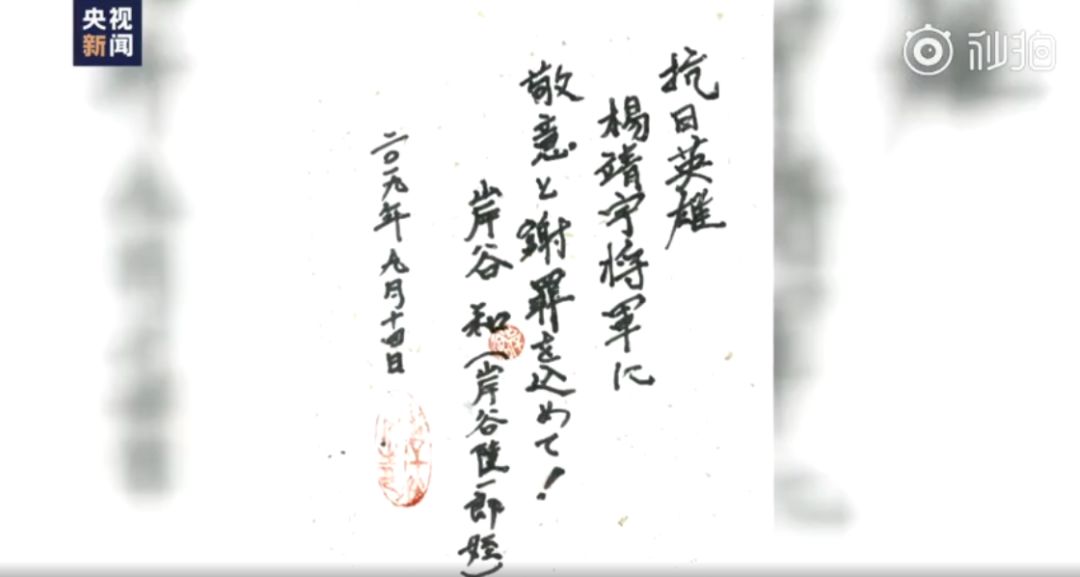 央视
新闻
秒拍
抗日英雄
楊靖宇将軍に
敬意と謝罪を込めて!
岸谷 和(岸谷隆一郎 姪)
二〇一九年 九月十四日